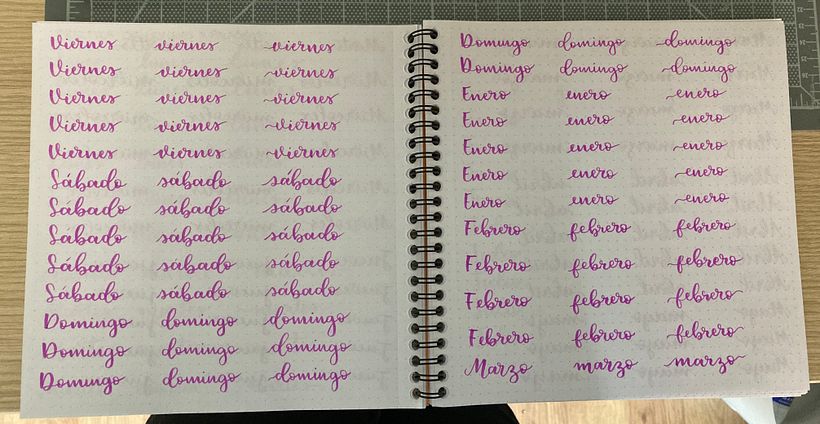 Viernes viernes viernes
Viernes viernes viernes
Viernes viernes viernes
Viernes viernes viernes
Viernes viernes viernes
Sábado sábado sábado
Sábado sábado sábado
Sábado sábado sábado
Sábado sábado sábado
Sábado sábado sábado
Domingo domingo domingo
Domingo domingo domingo
Domingo domingo domingo
Domingo domingo domingo
Domingo domingo domingo
Enero enero enero
Enero enero enero
Enero enero enero
Enero enero enero
Enero enero enero
Febrero febrero febrero
Febrero febrero febrero
Febrero febrero febrero
Febrero febrero febrero
Marzo marzo marzo